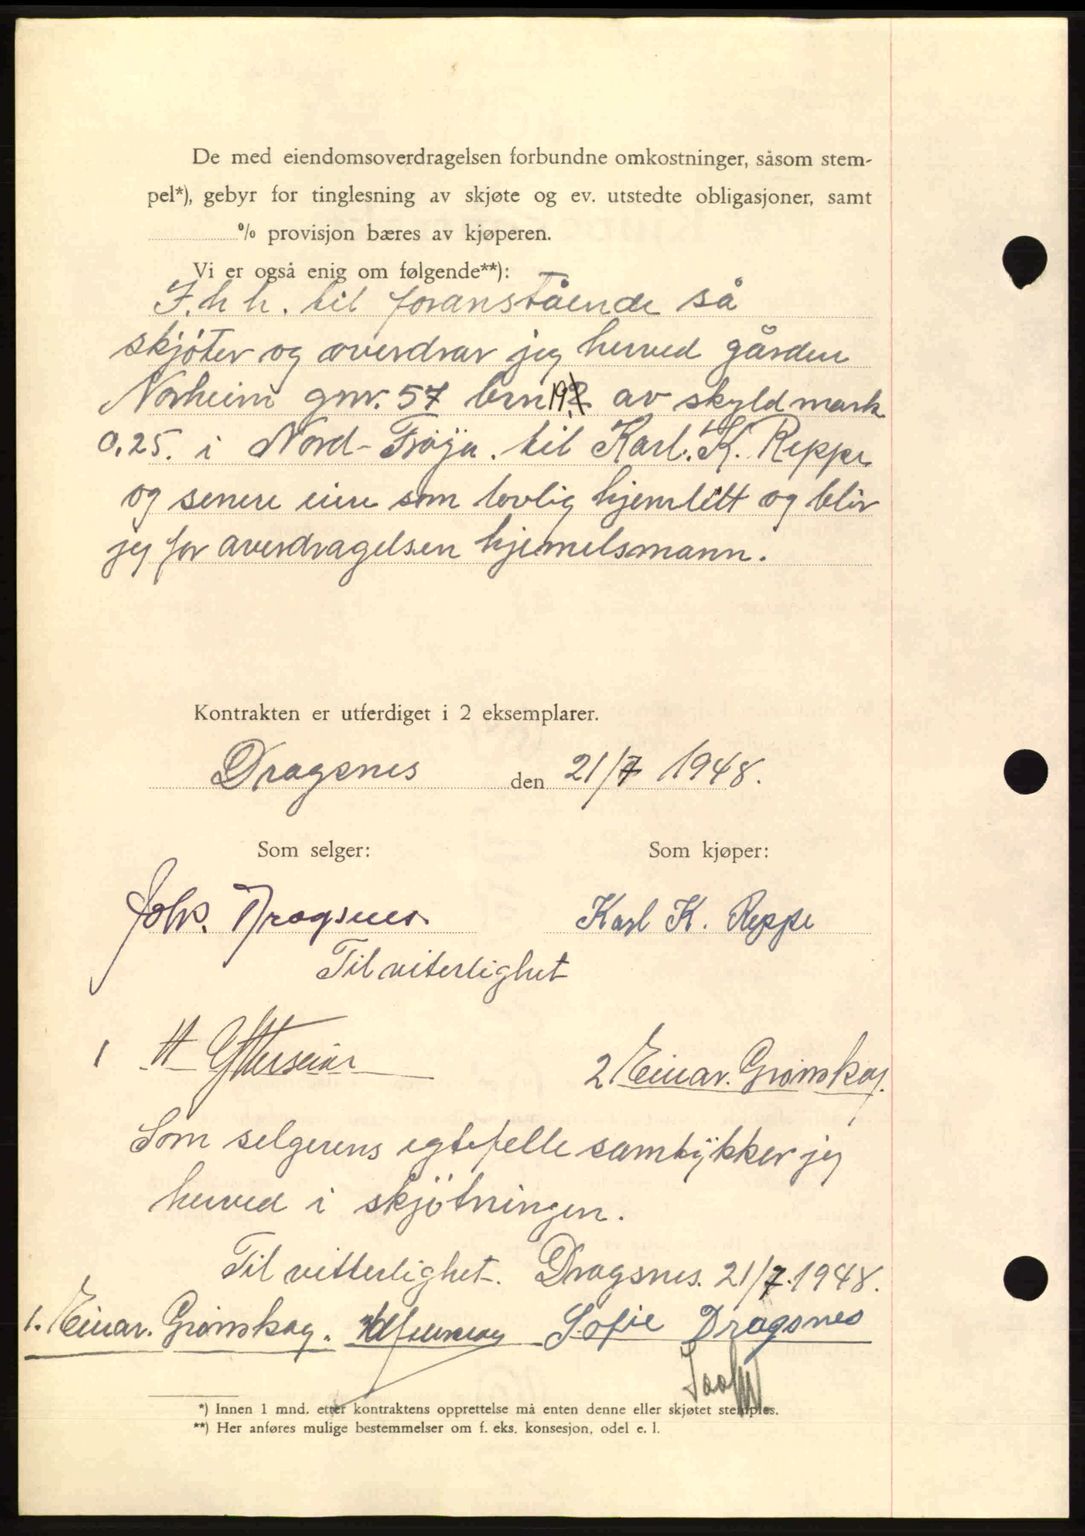 De med eiendomsoverdragelsen forbundne omkostninger, såsom stem-
pel*), gebyr for tinglesning av skjøte og ev. utstedte obligasjoner, samt
% provisjon bæres av kjøperen.
Vi er også enig om følgende**):
I. h h. til foranstående så
skjöter og overdrar jeg herved gården
Norheim gnr. 57 brn 19 av skyld mark
0.25. i Nord-Fröya. til Karl. K. Reppe
og senere eiere som lovlig hjemlett og blir
jeg for averdragelsen hjemelsmann.
Kontrakten er utferdiget i 2 eksemplarer.
Dragsnes den 21/7 1948.
Som selger: Som kjøper:
Johs. Dragsnes. Karl K. Reppe
Til viterlighet
1 H Ytterseian 2 Einar. Grönskag.
Som selgerens egtefelle samtykker jeg
herved i skjötningen.
Til vitterlighet. Dragsnes. 21/7. 1948.
1. Einar. Grönskag. Sofie Dragsnes
*) Innen 1 mnd. etter kontraktens opprettelse må enten denne eller skjøtet stemples.
**) Her anføres mulige bestemmelser om f. eks. konsesjon, odel e. l.